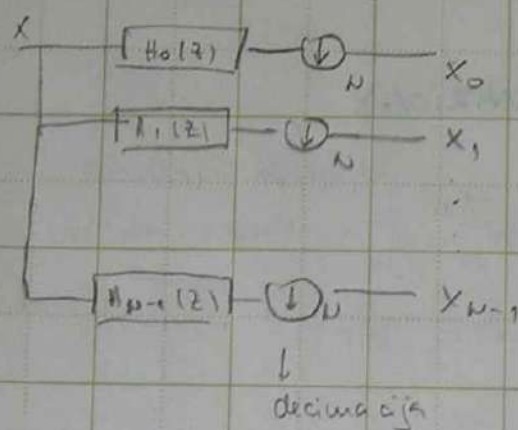 X H₀(z) ↓ N X₀
H₁(z) ↓ N X₁
H_{N-1}(z) ↓ N X_{N-1}
↓
decimacija